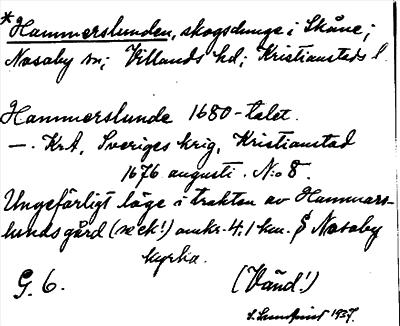 *Hammerslunden, skogsdunge i Skåne;
Nosaby sn; Villands hd; Kristianstads l.
Hammerslunde 1680-talet.
—. KrA, Sveriges krig, Kristianstad
1676 augusti. N:o 8.
Ungefärligt läge i trakten av Hammars-
lunds gård (se ek!) omkr. 4,1 km. S Nosaby
kyrka.
G. 6. (Vänd!)
1927.